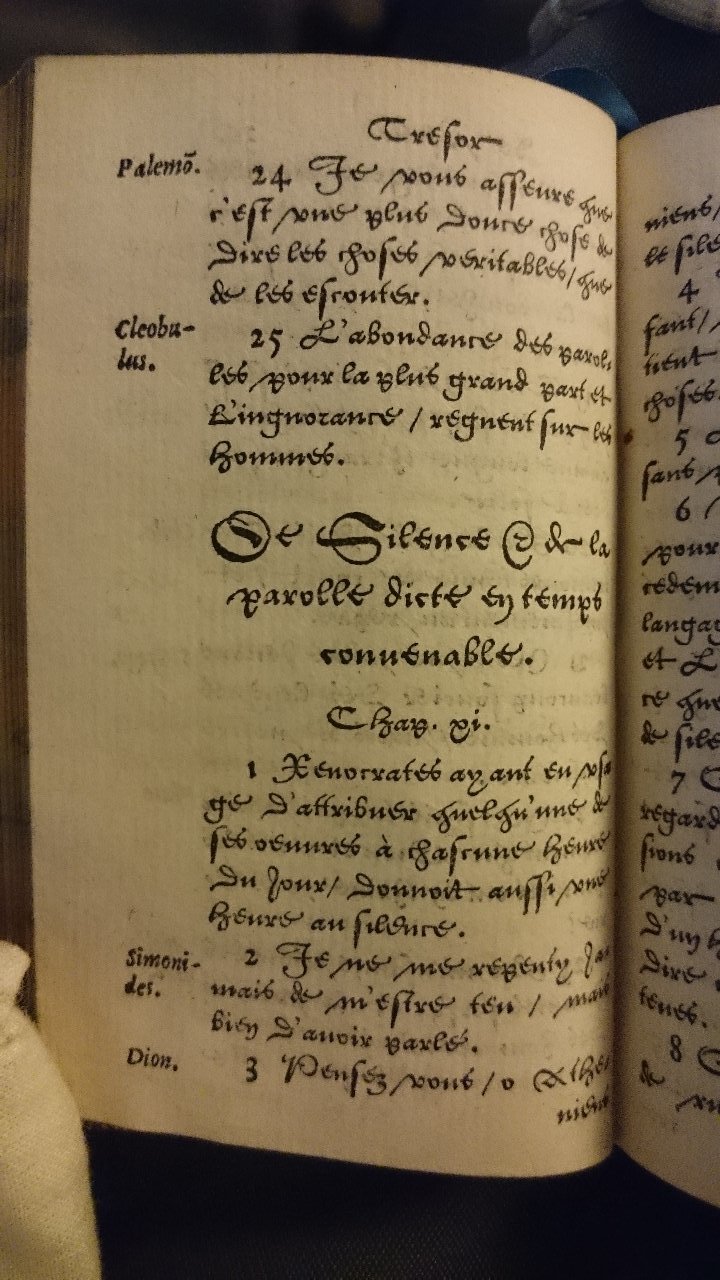 Tresor
Palemõ.
24 Je vous asseure que
c'est vne plus douce chose de
dire les choses veritables/que
de les escouter.
Cleobu-
lus.
25 L'abondance des parol-
les pour la plus grand part et
L'ingnorance / regnent sur les
hommes.
De Silence & de la
parolle dicte en temps
conuenable.
Chap. xi.
1 Xenocrates ayant en vsa
ge d'attribuer quelqu'une de
ses oeuures à chascune heure
du Jour/ donnoit aussi vne
heure au silence.
Simoni-
des.
2 Je ne me repenty Ja
mais de m'estre teu / mais
bien d'auoir parle.
Dion.
3 Pensez vous / o Athe
niens
niens/
le sile
4
fant/
tient
choses
5
sans
6
pour
cedem
langag
et L
ce que
de sile
7
regard
sions
par
d'un h
dire
tenes.
8
de